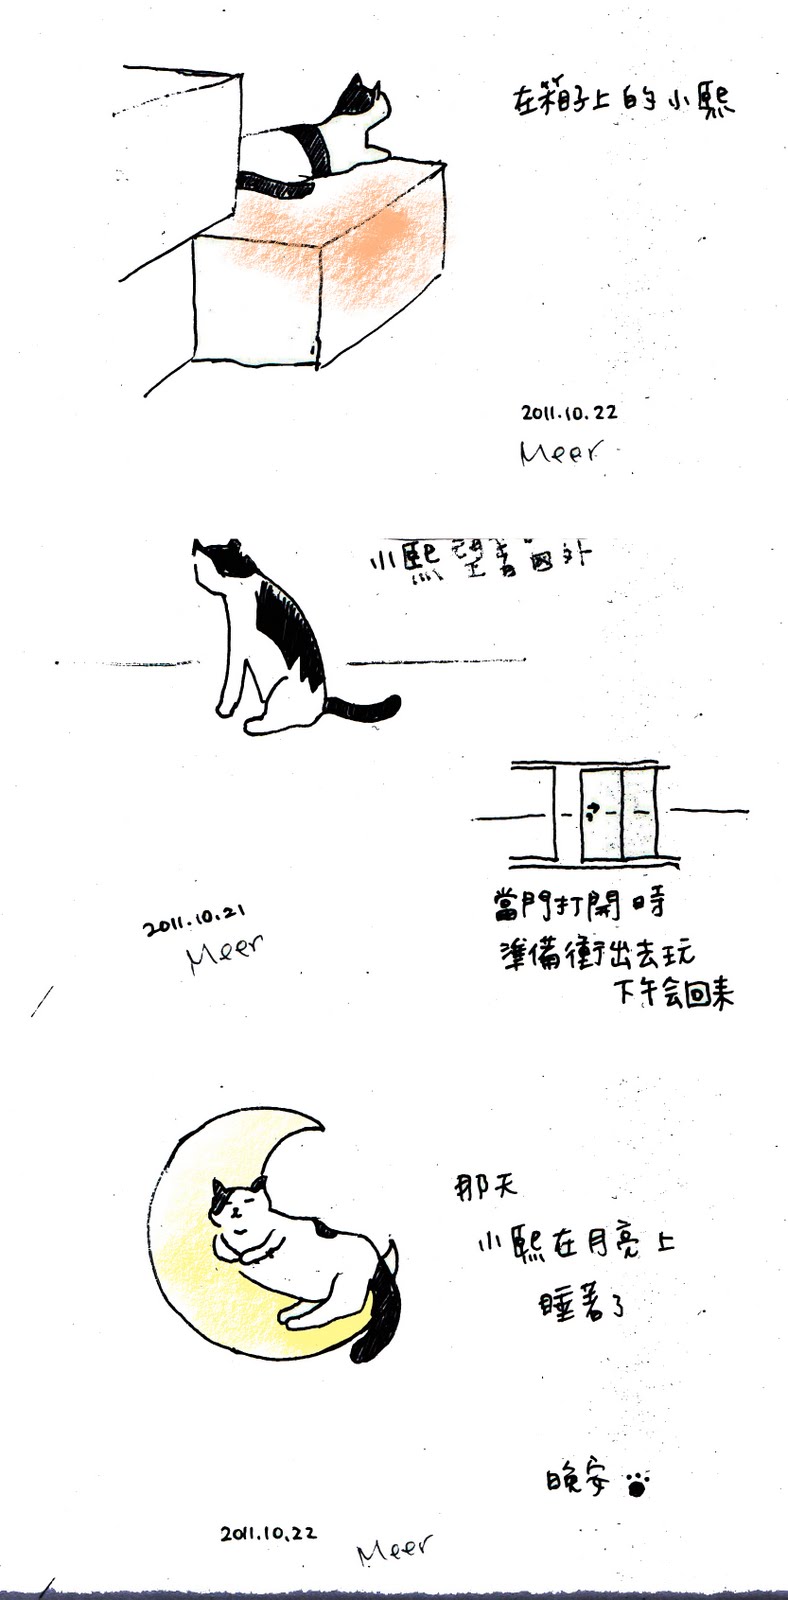 在箱子上的小熙
2011.10.22
Meer
小熙望著窗外
2011.10.21
Meer
當門打開時
準備衝出去玩
下午会回来
那天
小熙在月亮上
睡著了
晚安
2011.10.22
Meer